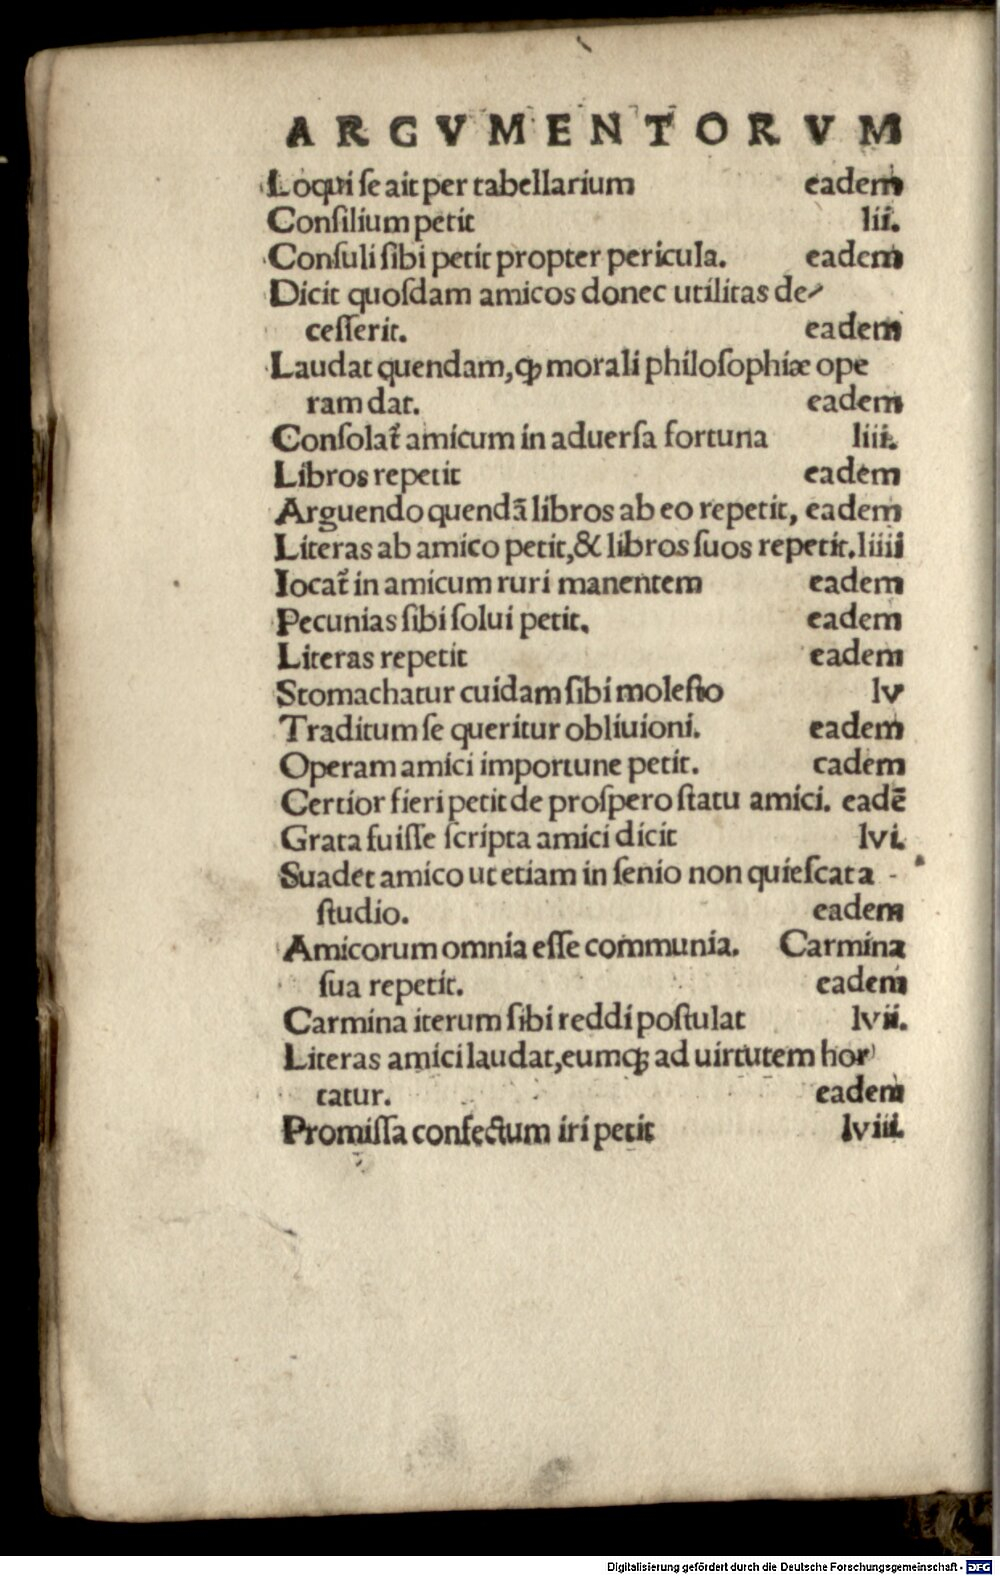 ARGVMENTORVM
Loqui se ait per tabellarium eadem
Consilium petit lii.
Consuli sibi petit propter pericula. eadem
Dicit quosdam amicos donec utilitas de⸗
cesserit. eadem
Laudat quendam, ꝙ morali philosophiæ ope
ram dat. eadem
Consolat᷑ amicum in aduersa fortuna liii.
Libros repetit eadem
Arguendo quendã libros ab eo repetit, eadem
Literas ab amico petit,& libros suos repetit. liiii
Iocat᷑ in amicum ruri manentem eadem
Pecunias sibi solui petit. eadem
Literas repetit eadem
Stomachatur cuidam sibi molesto lv
Traditum se queritur obliuioni. eadem
Operam amici importune petit. eadem
Certior fieri petit de prospero statu amici. eadẽ
Grata fuisse scripta amici dicit lvi.
Suadet amico ut etiam in senio non quiescat a
studio. eadem
Amicorum omnia esse communia. Carmina
sua repetit. eadem
Carmina iterum sibi reddi postulat lvii.
Literas amici laudat,eumq; ad uirtutem hor
tatur. eadem
Promissa confectum iri petit lviii.
Digitalisierung gefördert durch die Deutsche Forschungsgemeinschaft - DFG